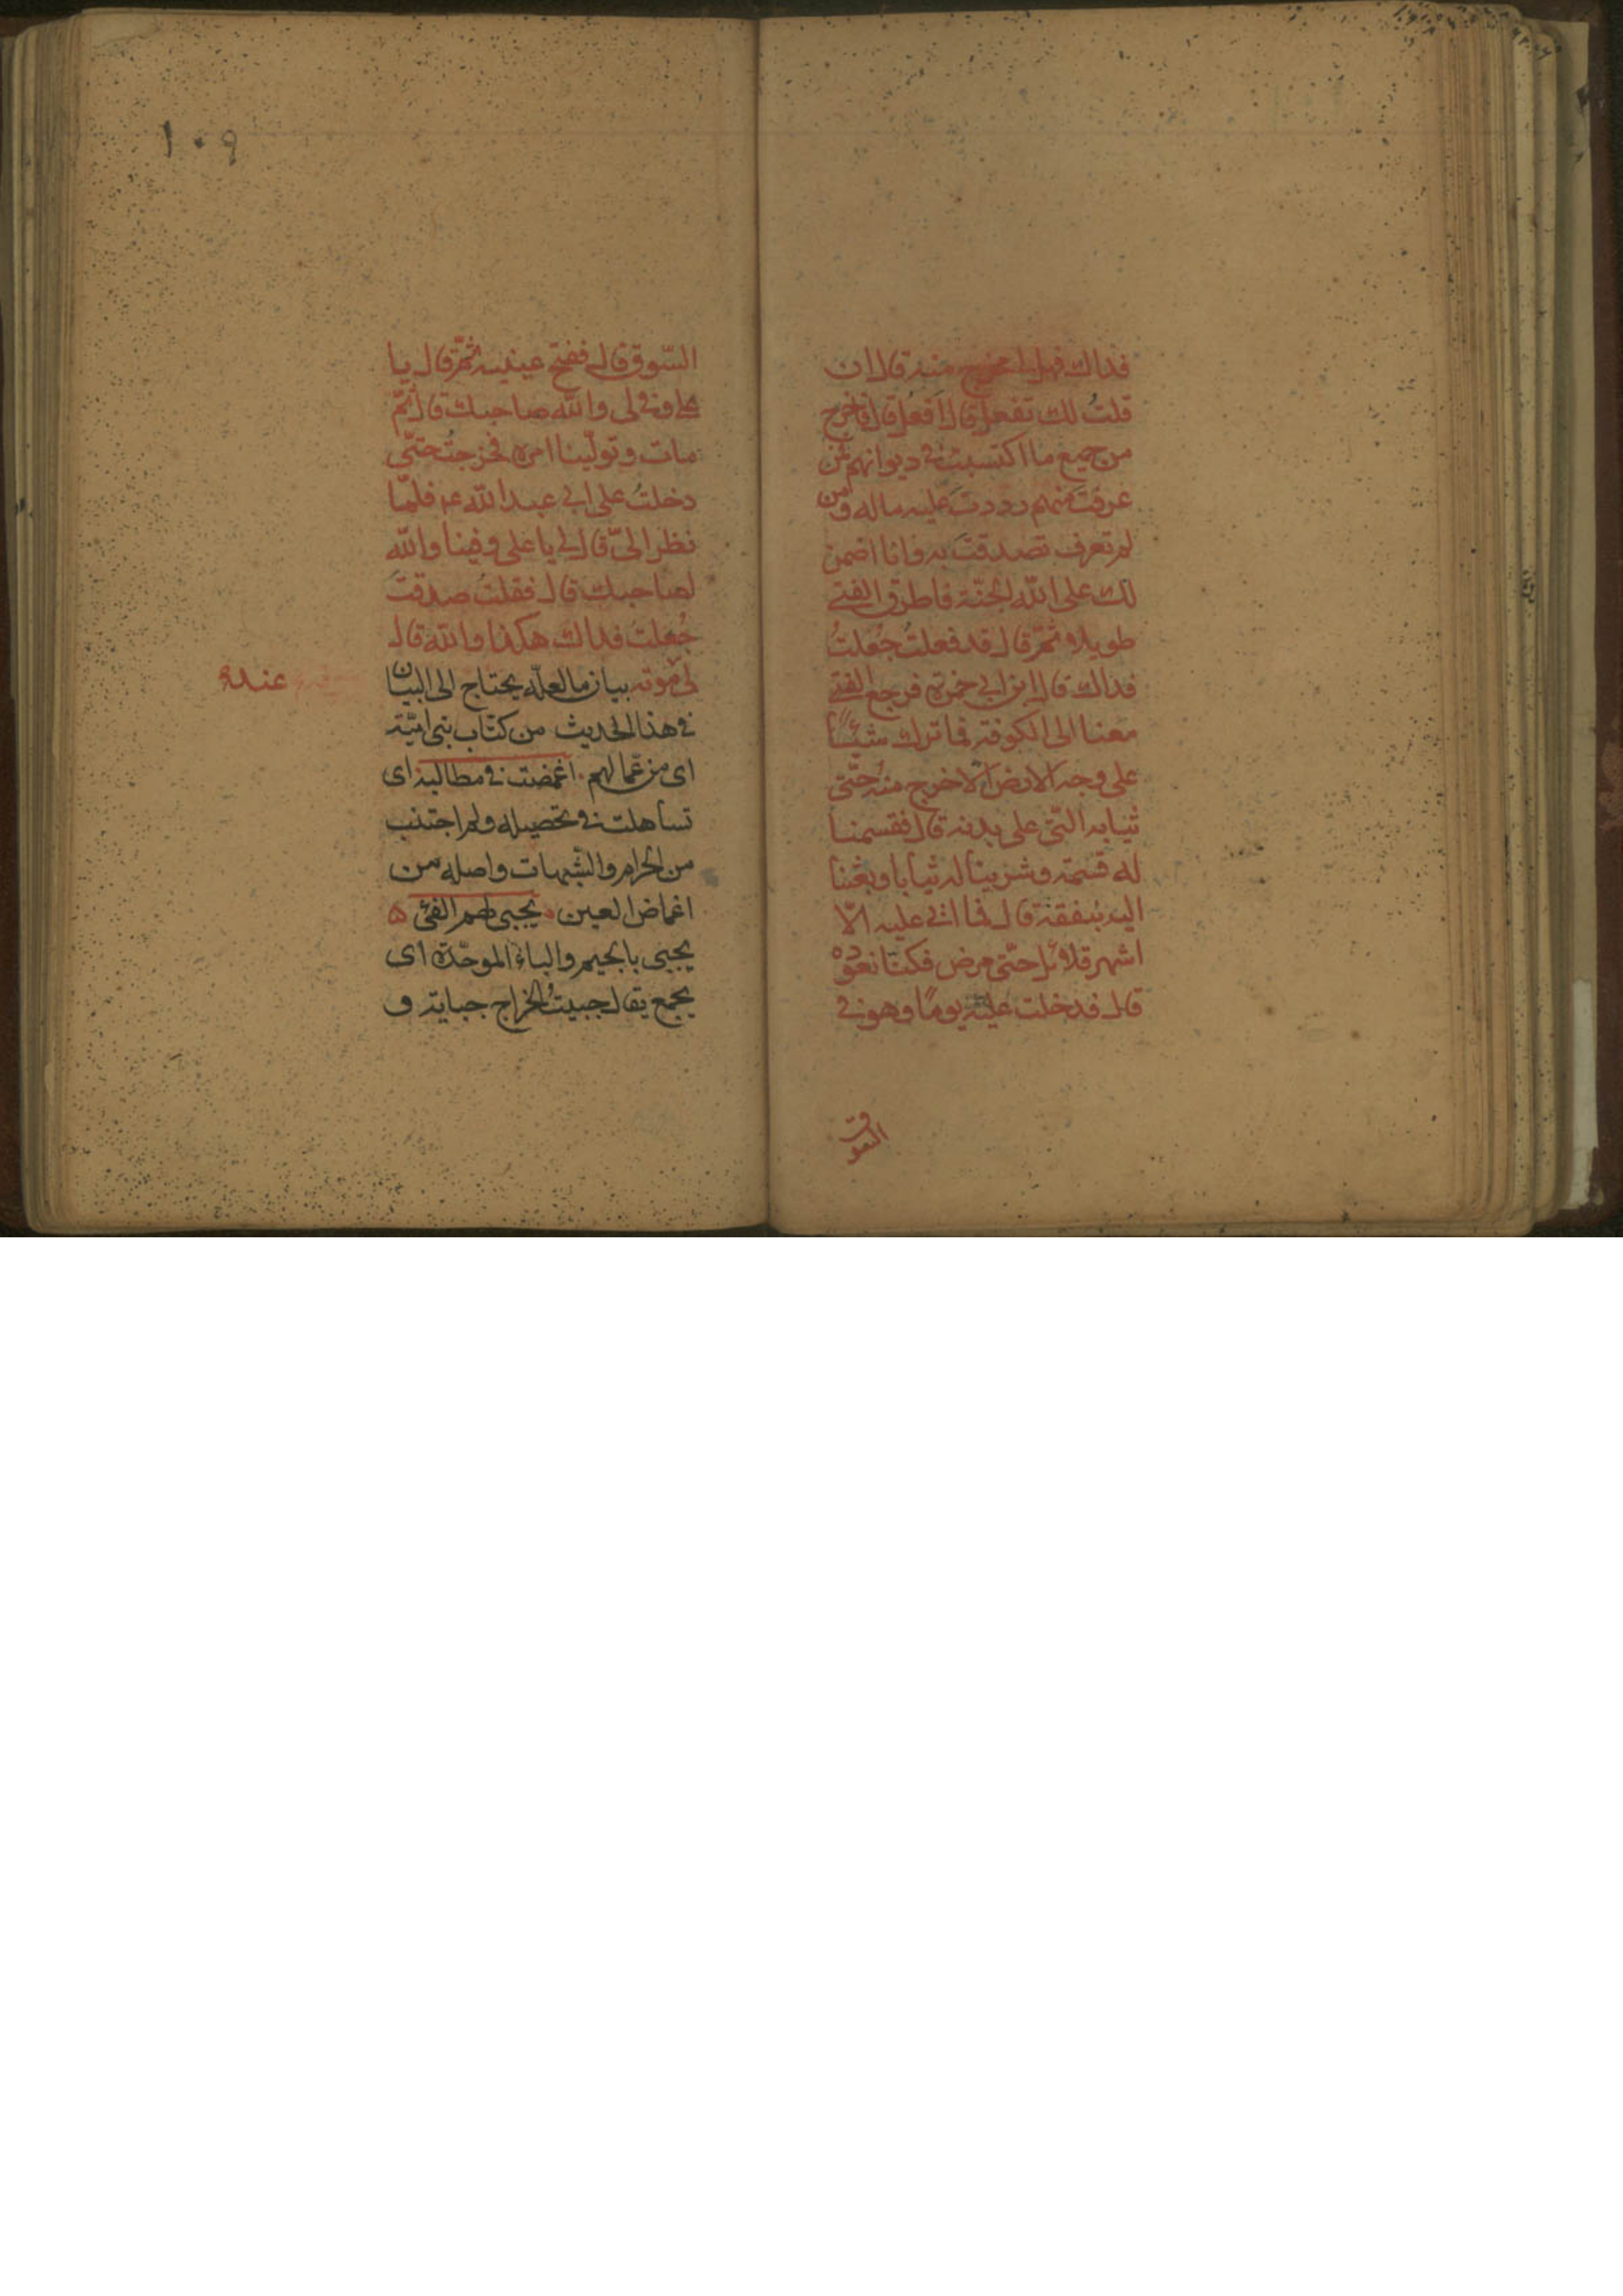 فداك فهل لى مخرج منه قال ان
قلتُ لك تفعل قال افعل قال فاخرج
من جميع ما اكتسبت فى ديوانهم فمن
عرفت منهم رددتَ عليه ماله ومن
لم تعرف تصدقتَ به وانا اضمن
لك على الله الجنّة فاطرق الفتى
طويلا ثمّ قال قد فعلتُ جُعلتُ
فداك قال ابن ابى حمزة فرجع الفتى
معنا الى الكوفة فما ترك شيئًا
على وجه الارض الّا خرج منه حتّى
ثيابه التّى على بدنه قال فقسمنا
له قسمة وشرينا له ثيابا وبعثنا
اليه بنفقة قال فما اتى عليه الّا
اشهر قلائل حتّى مرض فكنّا نعوده
قال فدخلت عليه يومًا وهو فى
السوق
١٠٩
السّوق قال ففتح عينيه ثمّ قال يا
على وفى لى والله صاحبك قال ثمّ
مات وتولّينا امره فخرجتُ حتّى
دخلتُ على ابى عبد الله عم فلمّا
نظر الىّ قال لى يا على وفينا والله
لصاحبك قال فقلتُ صدقتَ
جُعلتُ فداك هكذا والله قال
لى موته بيان ما لعلّه يحتاج الى البيان
عنده
فى هذا الحديث من كتّاب بنى اميّة
اى من عمّالهم اغمضت فى مطالبه اى
تساهلت فى تحصيله ولم اجتنب
من الحرام والشّبهات واصله من
اغماض العين يجبى لهم الفئ
يجبى بالجيم والباء الموحّدة اى
يجمع يقال جبيتُ الخراج جباية و